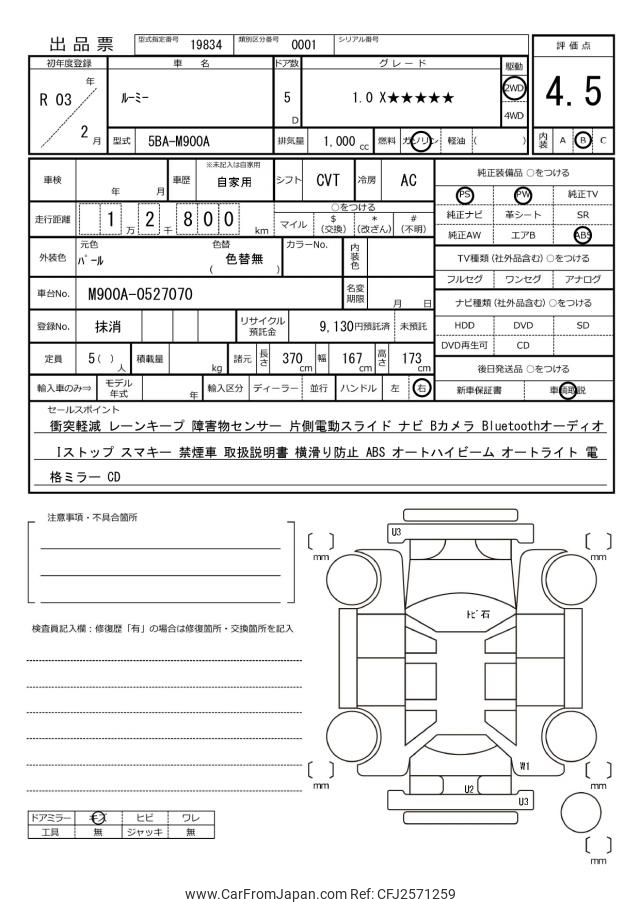 出品票
型式指定番号 19834 類別区分番号 0001 シリアル番号
評価点
4.5
初年度登録 車名 ドア数 グレード 駆動
R 03 年 2 月
ルーミー
5 D
1.0 X★★★★★
2WD
4WD
型式 5BA-M900A 排気量 1,000 cc 燃料 ガソリン 軽油 ( )
内装 A B C
車検 年 月 車歴 ※未記入は自家用 自家用 シフト CVT 冷房 AC
走行距離 1 万 2 千 8 0 0 km
○をつける
マイル $(交換) *(改ざん) #(不明)
外装色 元色 パール 色替 ( 色替無 ) カラーNo. 内装色
車台No. M900A-0527070 名変期限 月 日
登録No. 抹消 リサイクル預託金 9,130円預託済 未預託
定員 5( )人 積載量 kg 諸元 長さ 370 cm 幅 167 cm 高さ 173 cm
輸入車のみ⇒ モデル年式 年 輸入区分 ディーラー 並行 ハンドル 左 右
純正装備品 ○をつける
PS PW 純正TV
純正ナビ 革シート SR
純正AW エアB ABS
TV種類 (社外品含む) ○をつける
フルセグ ワンセグ アナログ
ナビ種類 (社外品含む) ○をつける
HDD DVD SD
DVD再生可 CD
後日発送品 ○をつける
新車保証書 車輌取説
セールスポイント
衝突軽減 レーンキープ 障害物センサー 片側電動スライド ナビ Bカメラ Bluetoothオーディオ
Iストップ スマキー 禁煙車 取扱説明書 横滑り防止 ABS オートハイビーム オートライト 電
格ミラー CD
注意事項・不具合箇所
検査員記入欄：修復歴「有」の場合は修復箇所・交換箇所を記入
U3
mm
mm
トビ石
W1
mm
mm
U2
U3
mm
ドアミラー キズ ヒビ ワレ
工具 無 ジャッキ 無
www.CarFromJapan.com Ref: CFJ2571259